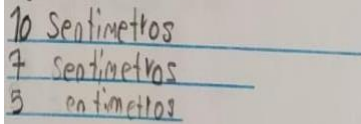 10 sentimetros
7 sentimetros
5 entimetros